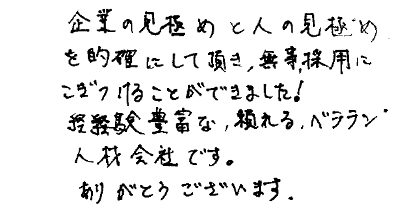 企業の見極めと人の見極め
を的確にして頂き,無事,採用に
こぎつけることができました!
経経験豊富な,頼れる,ベテラン
人材会社です。
ありがとうございます.